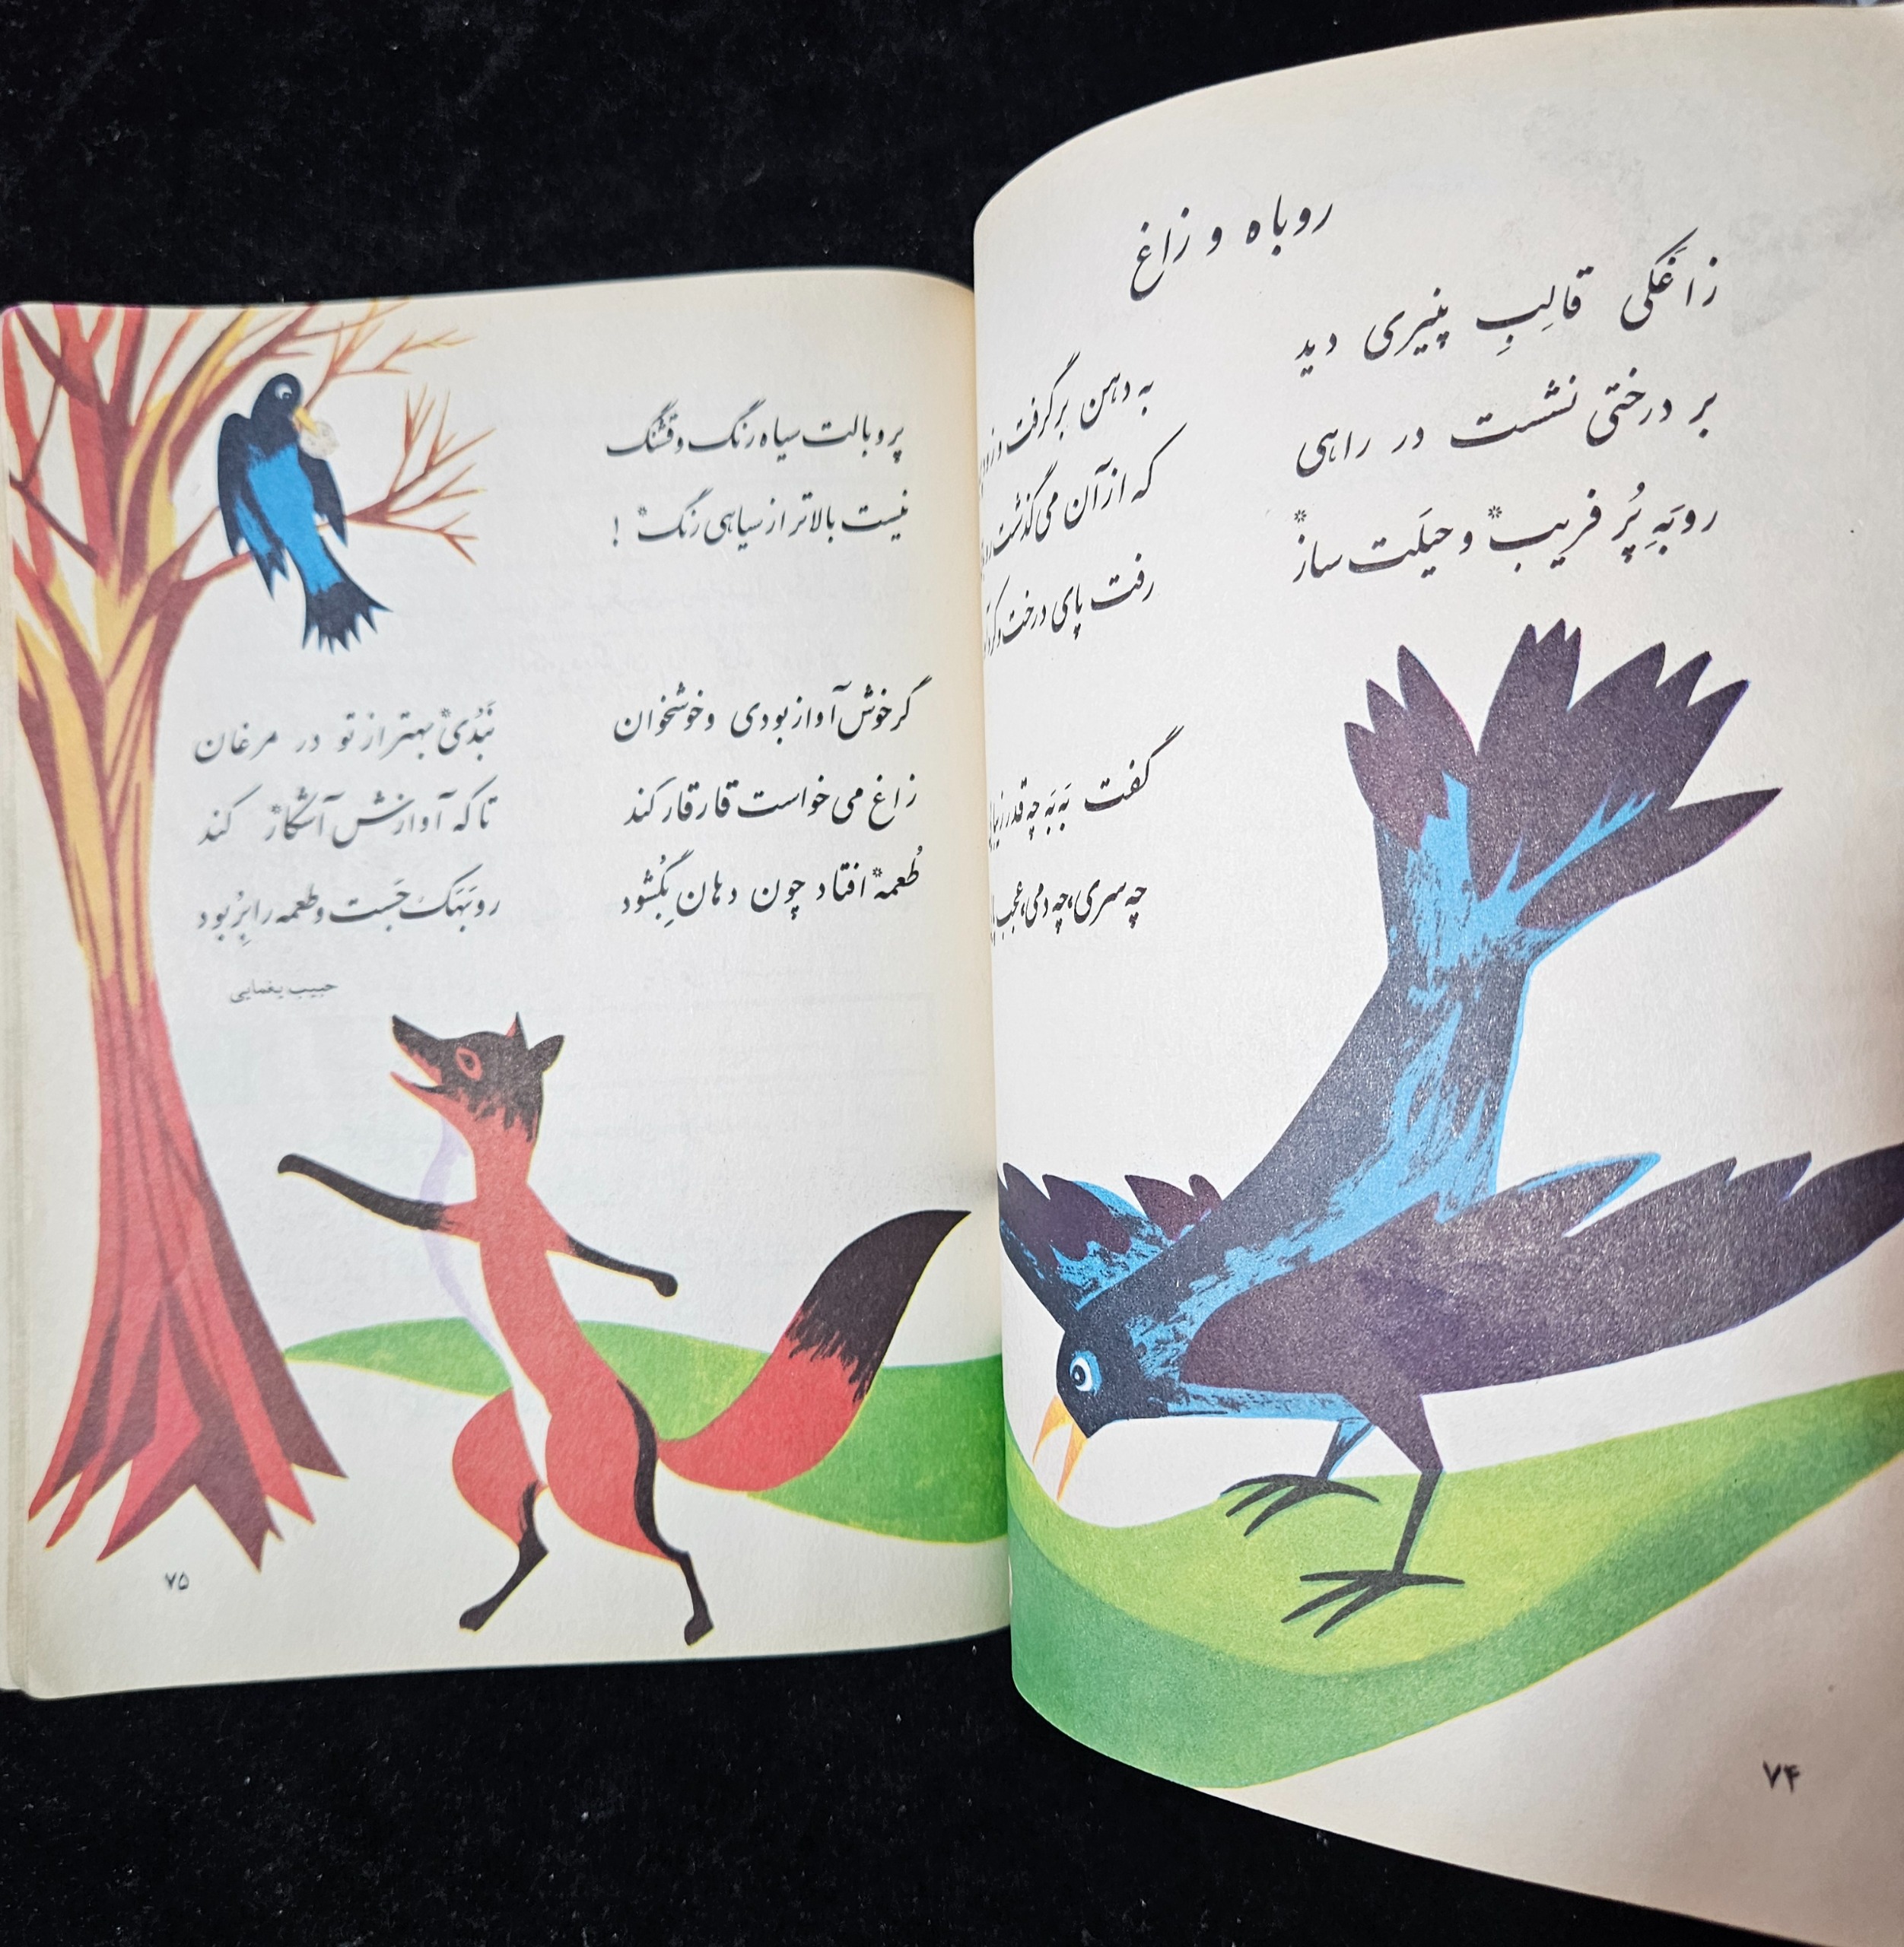 روباه و زاغ
زاغَکی قالِبِ پنیری دید به دهن برگرفت و
بر درختی نشست در راهی که از آن می گذشت
روبَهِ پُر فریب* و حیلَت ساز* رفت پای درخت و
گفت بَه بَه چه قدر
چه سری، چه دمی، عجب
۷۴
پر و بالت سیاه رنگ و قشنگ
نیست بالاتر از سیاهی رنگ* !
گر خوش آواز بودی و خوشخوان نَبُدی* بهتر از تو در مرغان
زاغ می خواست قارقار کند تا که آوازش آشکار* کند
طُعمه* افتاد چون دهان بِگشود روبَهَک جَست و طعمه را بِرُبود
حبیب یغمایی
۷۵